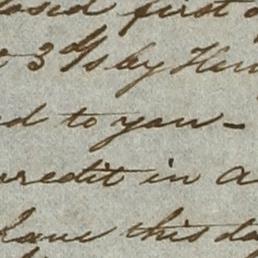 osed first o
3 d/s by Hen
ed to you -
credit in a
have this da